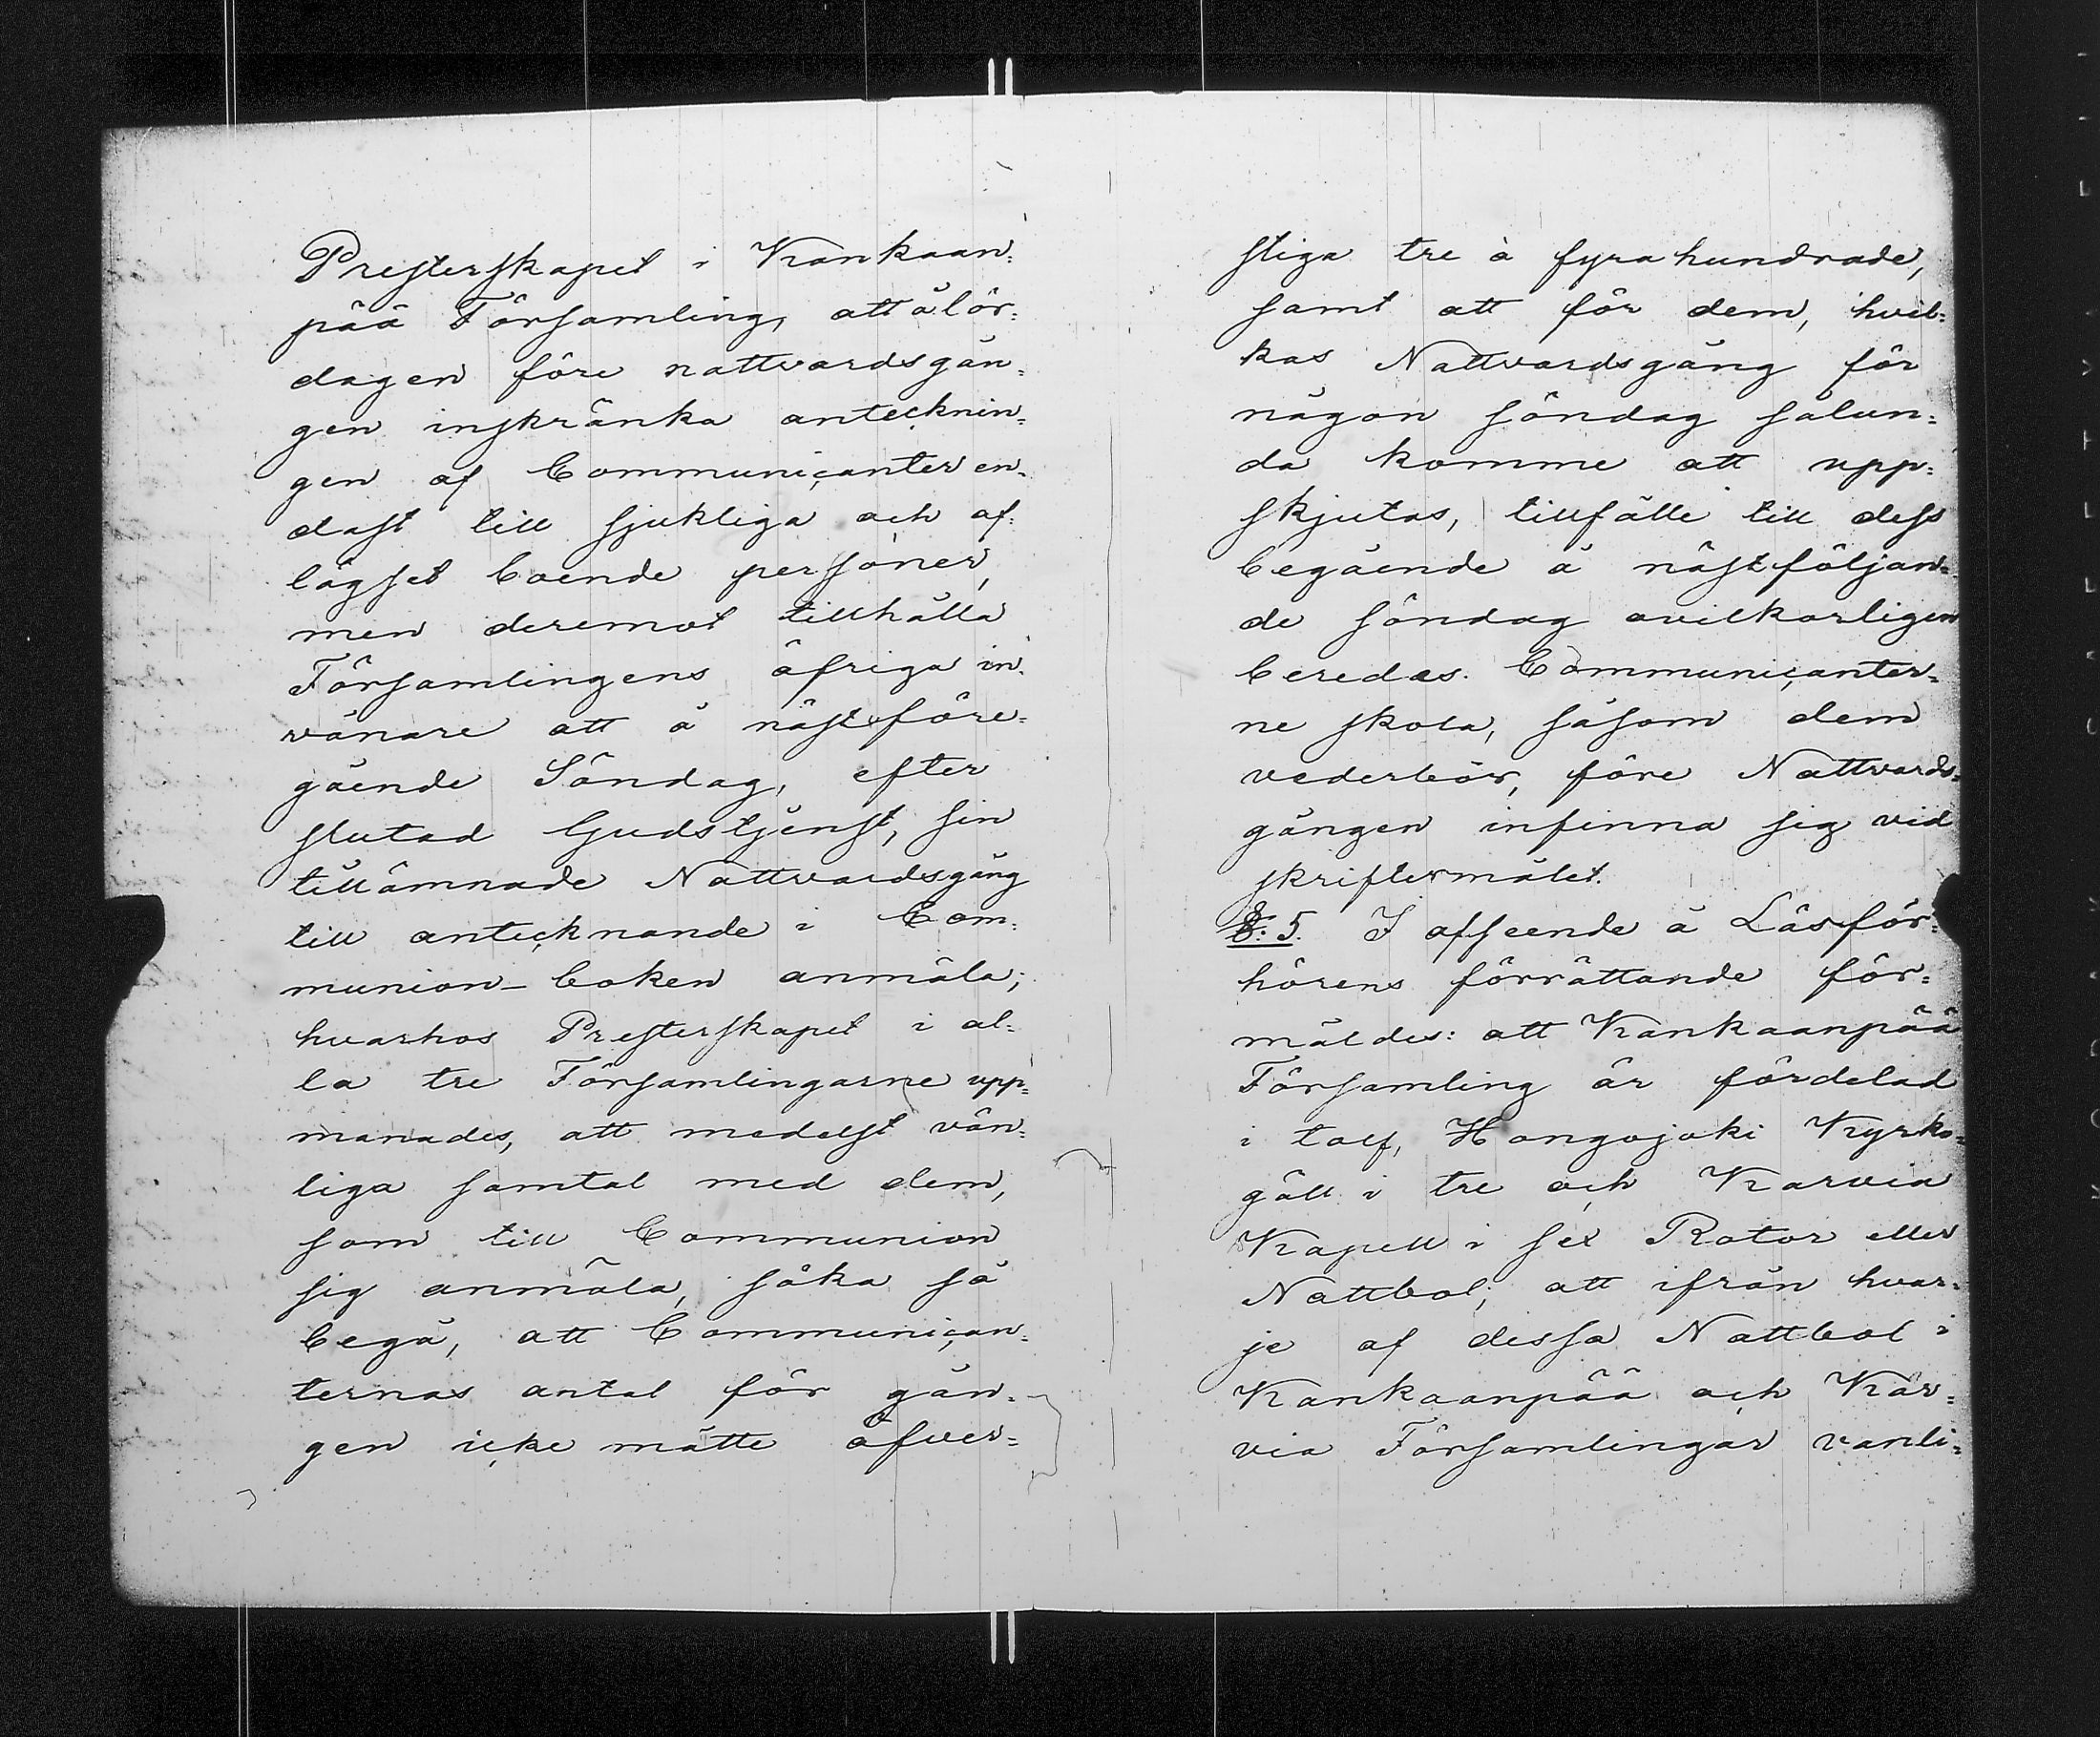 Presterskapet i Kankaan=
pää Församling, att å lör=
dagen före nattvardsgån=
gen inskränka antecknin=
gen af Communicanter en=
dast till sjukliga och af=
lägset boende personer,
men deremot tillhålla
Församlingens öfriga in=
vånare att å nästföre=
gående Söndag, efter
slutad Gudstjenst, sin
tillämnade Nattvardsgång
till antecknande i Com=
munion-boken anmäla;
hvarhos Presterskapet i al=
la tre Församlingarne upp=
manades, att medelst vän=
liga samtal med dem,
som till Communion
sig anmäla, söka så
begå, att Communican=
ternas antal för gån=
gen icke måtte öfver=
stiga tre à fyrahundrade,
samt att för dem, hvil=
kas Nattvardsgång för
någon söndag sålun=
da komme att upp=
skjutas, tillfälle till dess
begående å nästföljan=
de söndag ovilkorligen
beredas. Communicanter=
ne skola, såsom dem
vederbör, före Nattvards=
gången infinna sig vid
skriftermålet.
§. 5. I afseende å Läsför=
hörens förrättande för=
mäldes: att Kankaanpää
Församling är fördelad
i tolf, Hongojoki Kyrko=
gäll i tre och Karvia
Kapell i sex Rotor eller
Nattbol; att ifrån hvar=
je af dessa Nattbol i
Kankaanpää och Kar=
via Församlingar vanli=